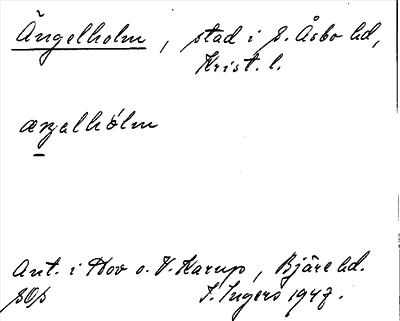 Ängelholm, stad i S. Åsbo hd,
Krist. l.
æŋəlhólm
Ant. i Hov o. V. Karup, Bjäre hd.
I. Ingers 1947.